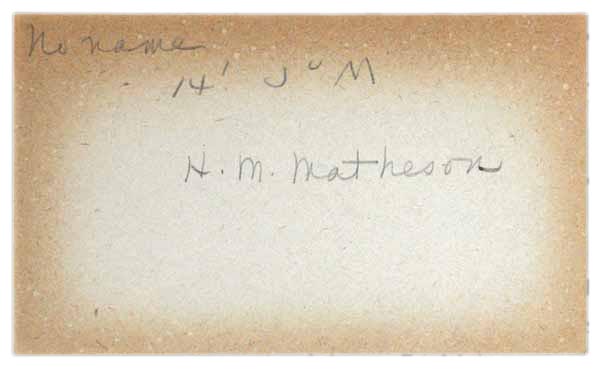 No name
14' J " M
H. M. Matheson